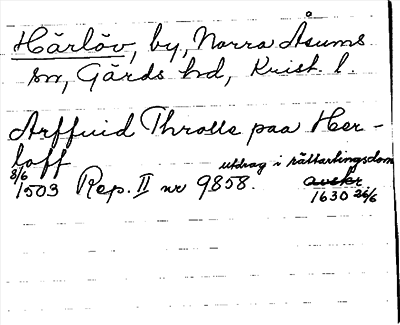 Härlöv, by, Norra Åsums
sn, Gärds hd, Krist. l.
Arffuid Throlle paa Her-
loff
8/6 1503 Rep. II nr 9858. utdrag i rättartingsdom
avskr
1630 26/6